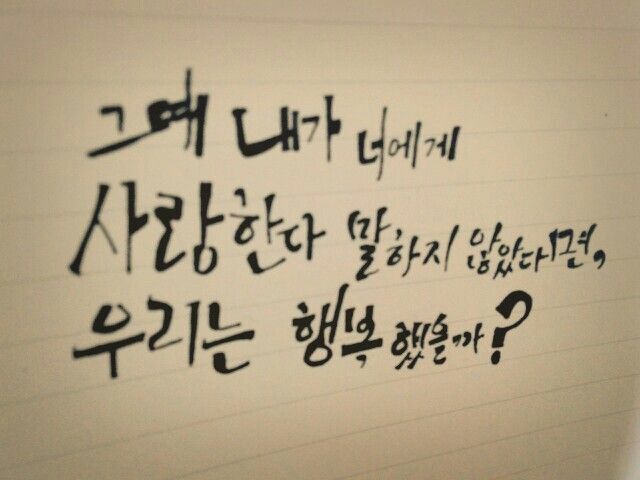 그때 내가 너에게
사랑한다 말하지 않았다면,
우리는 행복했을까?